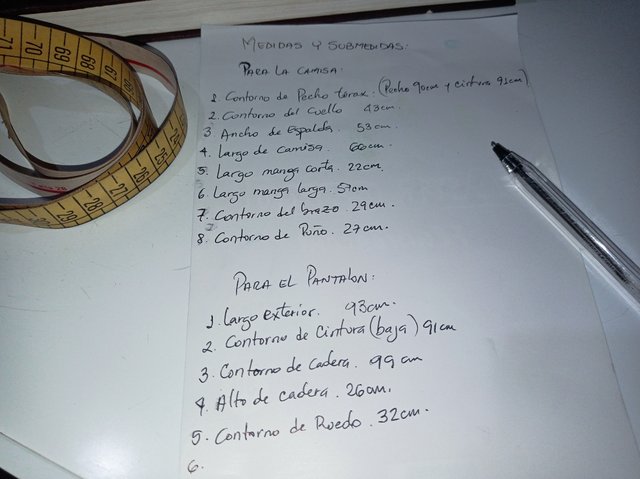 MEDIDAS Y SUBMEDIDAS:
PARA LA CAMISA:
1. Contorno de Pecho tórax: (Pecho 90cm y cintura 91cm)
2. Contorno del Cuello 43cm.
3. Ancho de Espalda. 53cm.
4. Largo de Camisa. 60cm.
5. Largo manga corta. 22cm.
6. Largo manga larga. 57cm
7. Contorno del brazo. 29cm.
8. Contorno de Puño. 27cm.
PARA EL PANTALON:
1. Largo exterior. 93cm.
2. Contorno de Cintura (baja) 91cm
3. Contorno de Cadera. 99cm
4. Alto de cadera. 26cm.
5. Contorno de Ruedo. 32cm.
6.
71 70 69 68 67
29 28 27 26